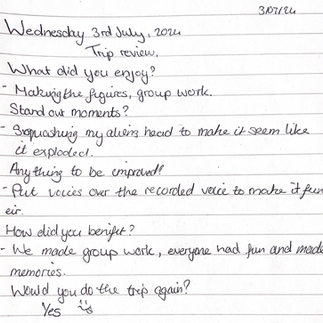 3/07/24
Wednesday 3rd July, 2024
Trip review.
What did you enjoy?
- Making the figures, group work.
Stand out moments?
- Squashing my aliens head to make it seem like
it exploded.
Anything to be improved?
- Put voices over the recorded voice to make it funn
eir.
How did you benifit?
- We made group work, everyone had fun and made
memories.
Would you do the trip again?
Yes